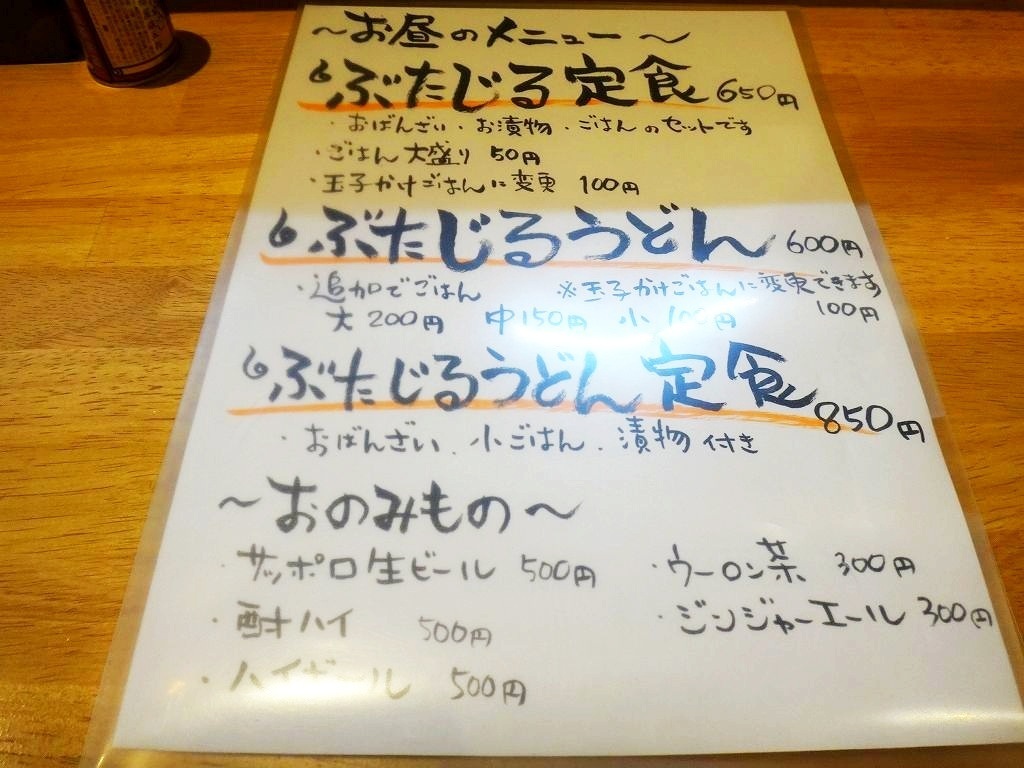 ～お昼のメニュー～
ぶたじる定食 650円
・おばんざい・お漬物・ごはんのセットです
・ごはん大盛り 50円
・玉子かけごはんに変更 100円
ぶたじるうどん 600円
・追加でごはん ※玉子かけごはんに変更できます
大200円 中150円 小100円 100円
ぶたじるうどん定食 850円
・おばんざい.小ごはん.漬物付き
～おのみもの～
・サッポロ生ビール 500円 ・ウーロン茶 300円
・酎ハイ 500円 ・ジンジャーエール 300円
・ハイボール 500円